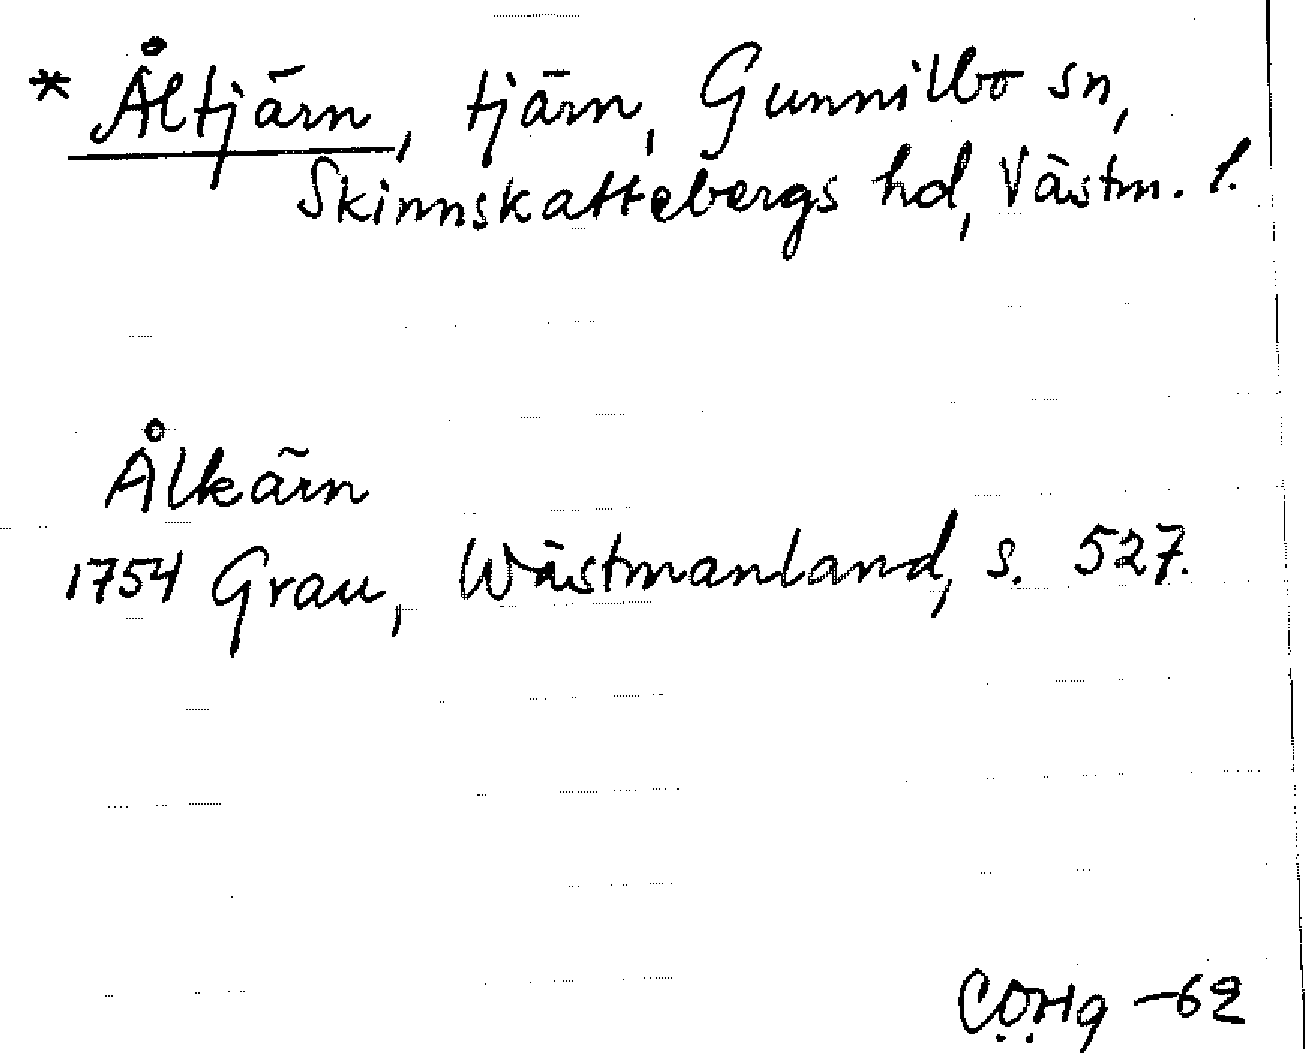 * Åltjärn, tjärn, Gunnilbo sn,
Skinnskattebergs hd, Västm. l.
Ålkärn
1754 Grau, Wästmanland, s. 527.
-62